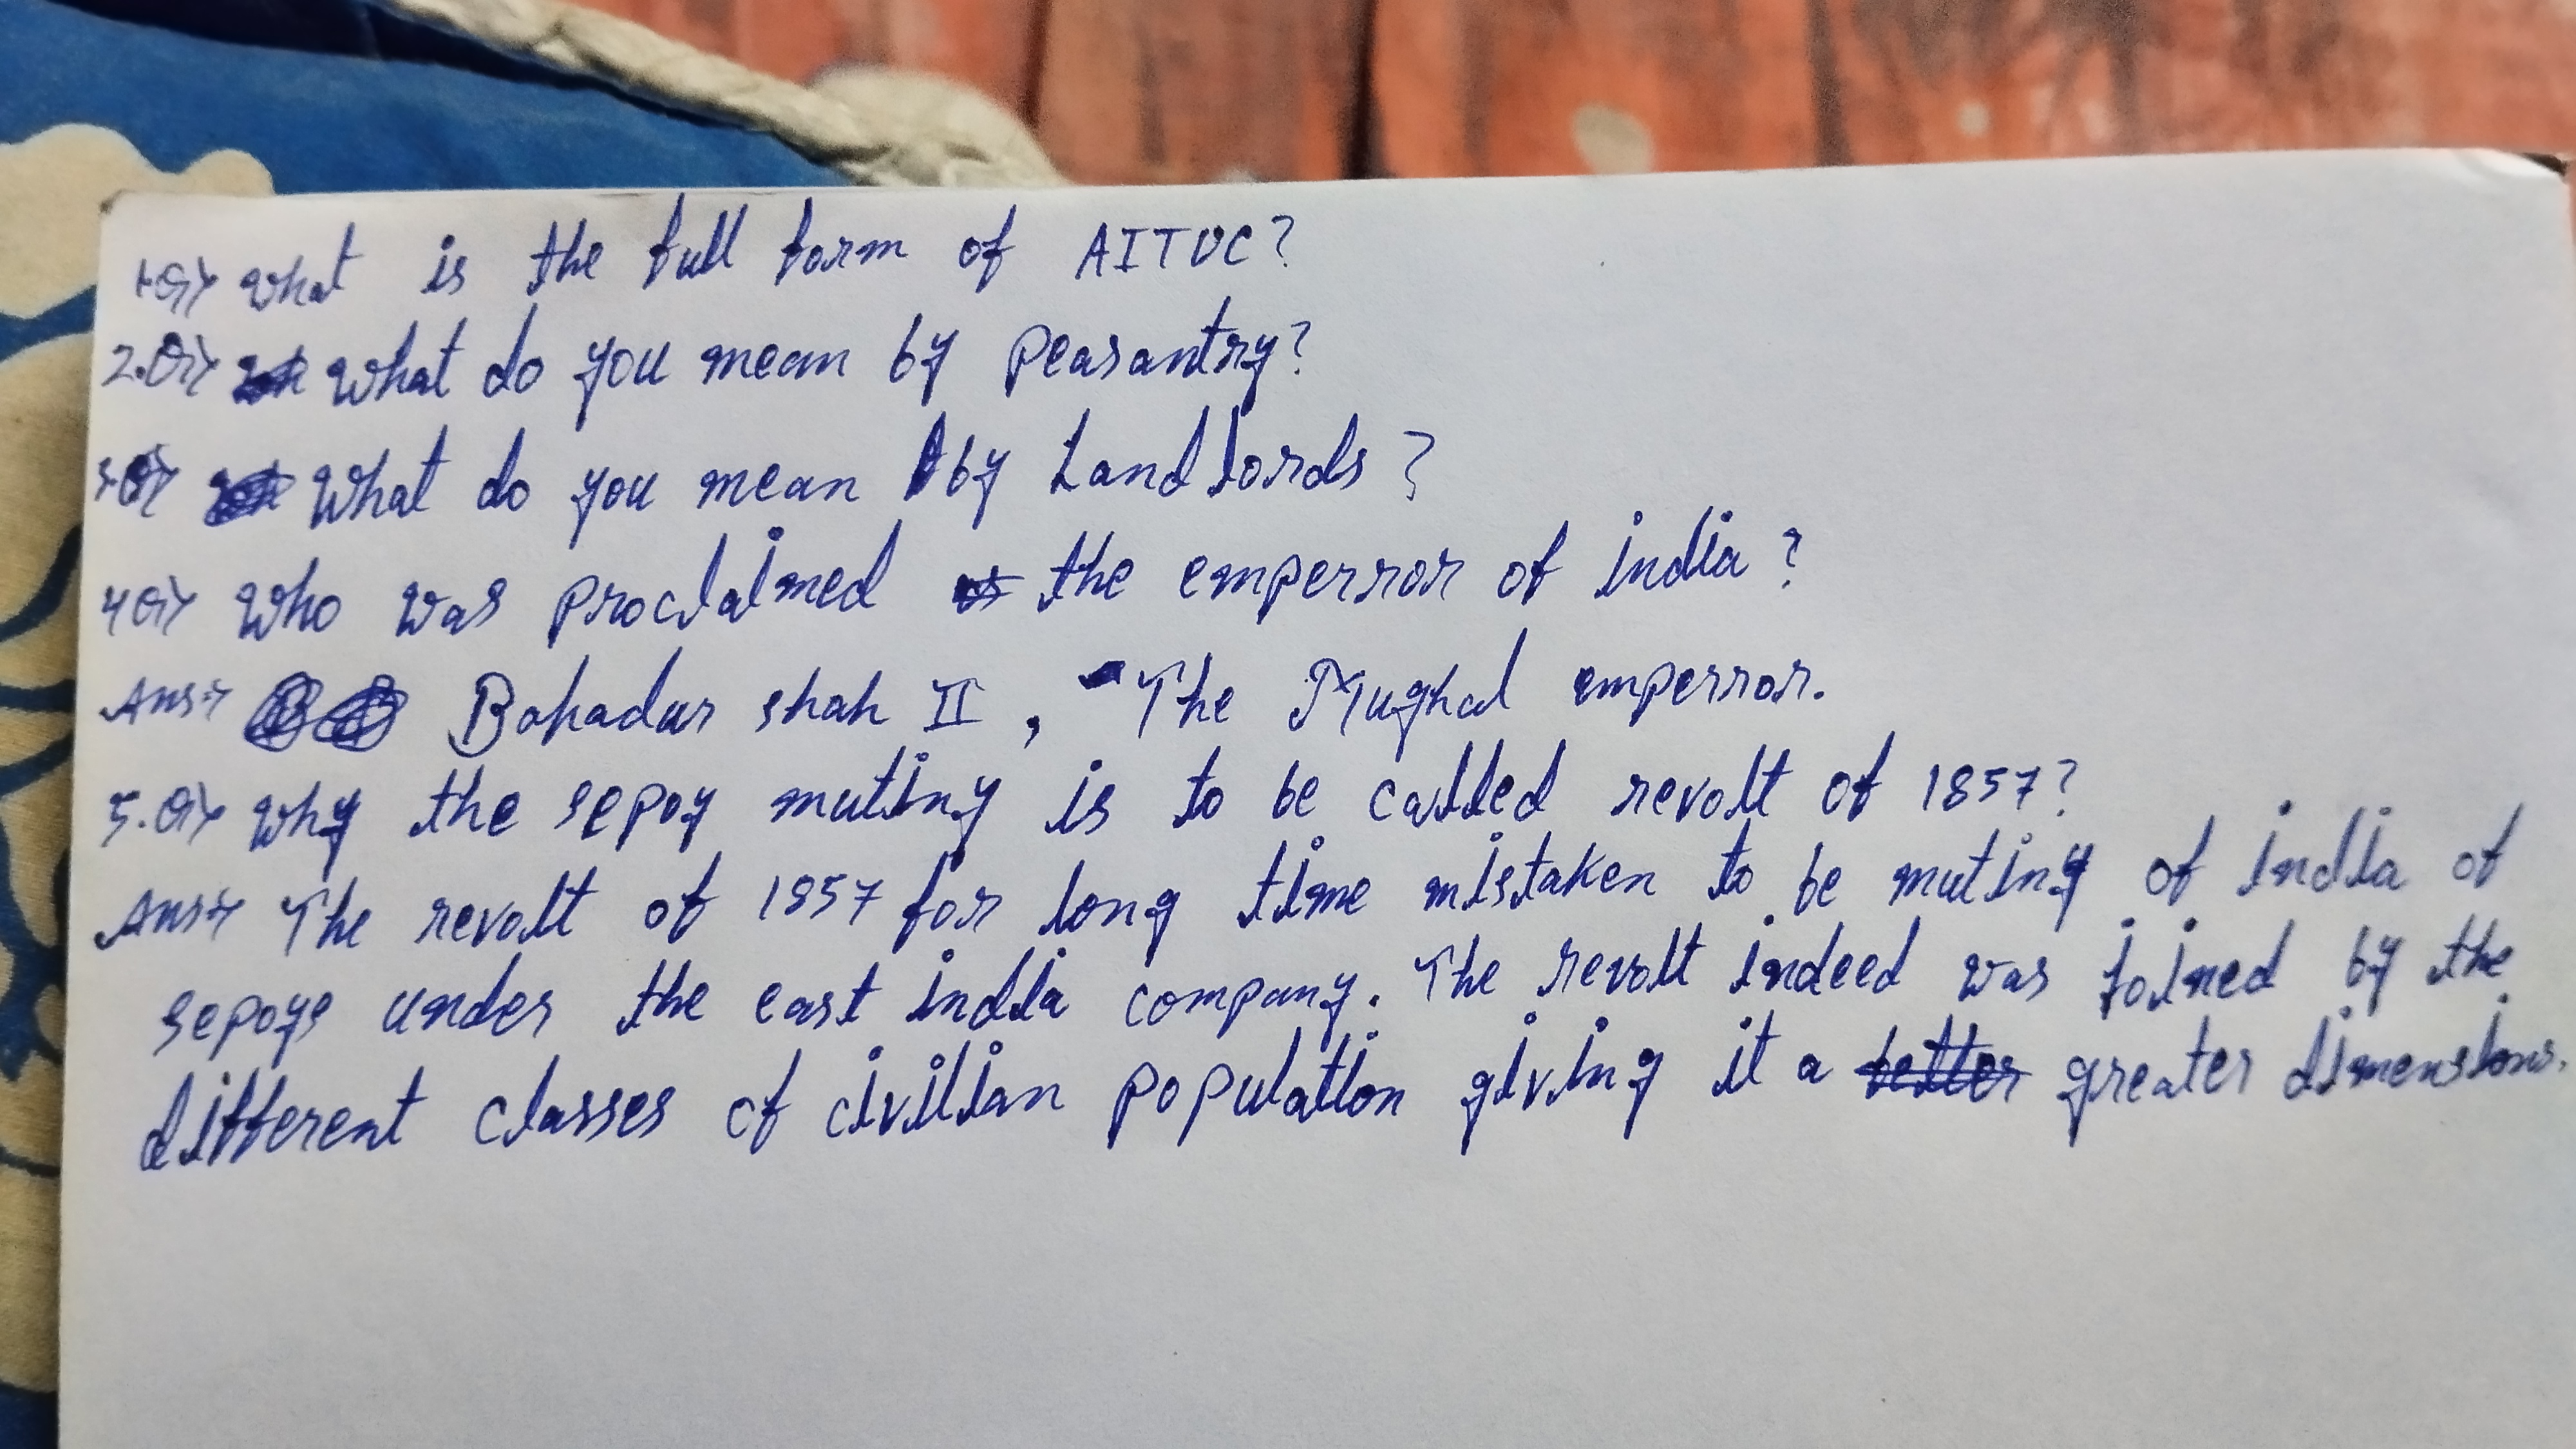 1.Q:> what is the full form of AITUC?
2.Q:> what do you mean by peasantry?
3.Q:> what do you mean by Landlords?
4 Q:> who was proclaimed the emperror of india?
Ans:> Bahadur shah II, The Mughal emperror.
5.Q:> why the sepoy mutiny is to be called revolt of 1857?
Ans:> The revolt of 1857 for long time mistaken to be mutiny of india of
sepoys under the east india company. The revolt indeed was joined by the
different classes of civilian population giving it a better greater dimensions.